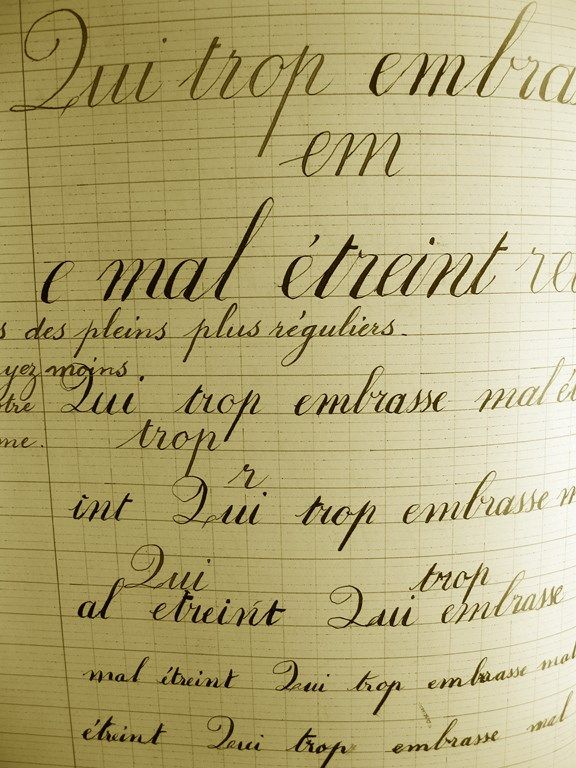 Qui trop embra
em
e mal étreint re
s des pleins plus réguliers.
yez moins
tre Qui trop embrasse mal ét
me. trop
r
int Qui trop embrasse m
Qui trop
al etreint Qui embrasse
mal étreint Qui trop embrasse mal
étreint Qui trop embrasse mal